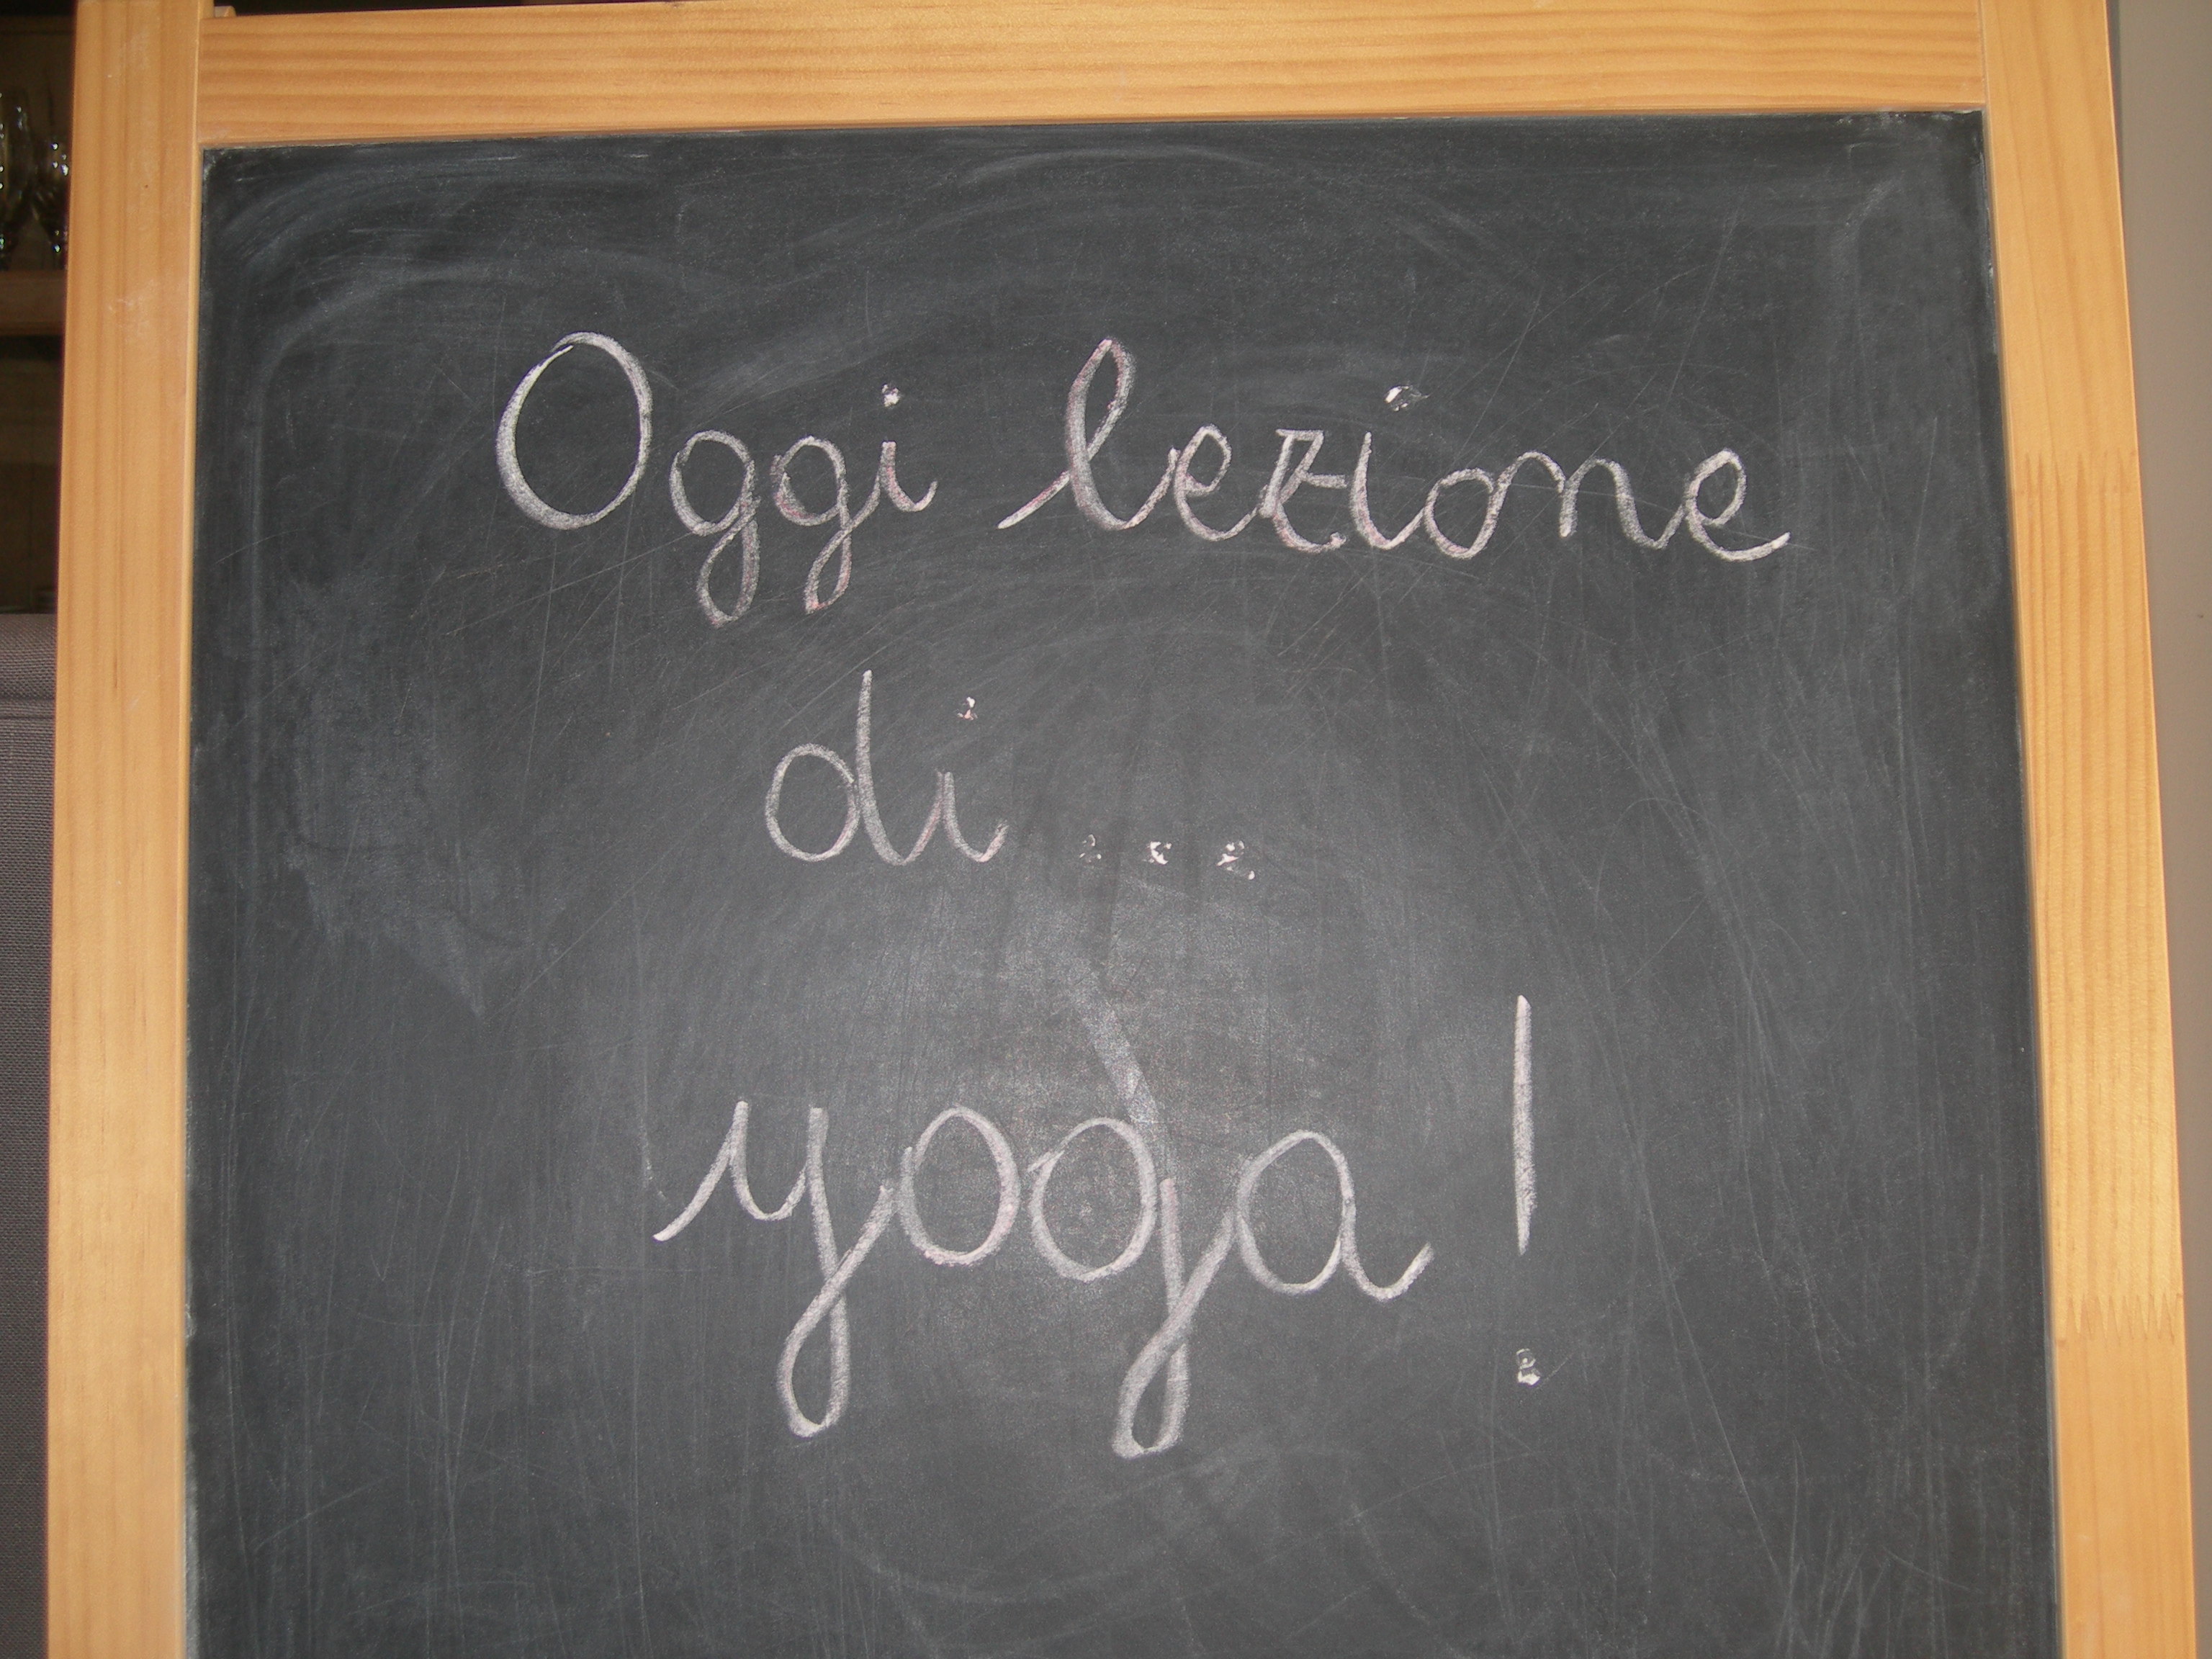 Oggi lezione
di ...
yoga !